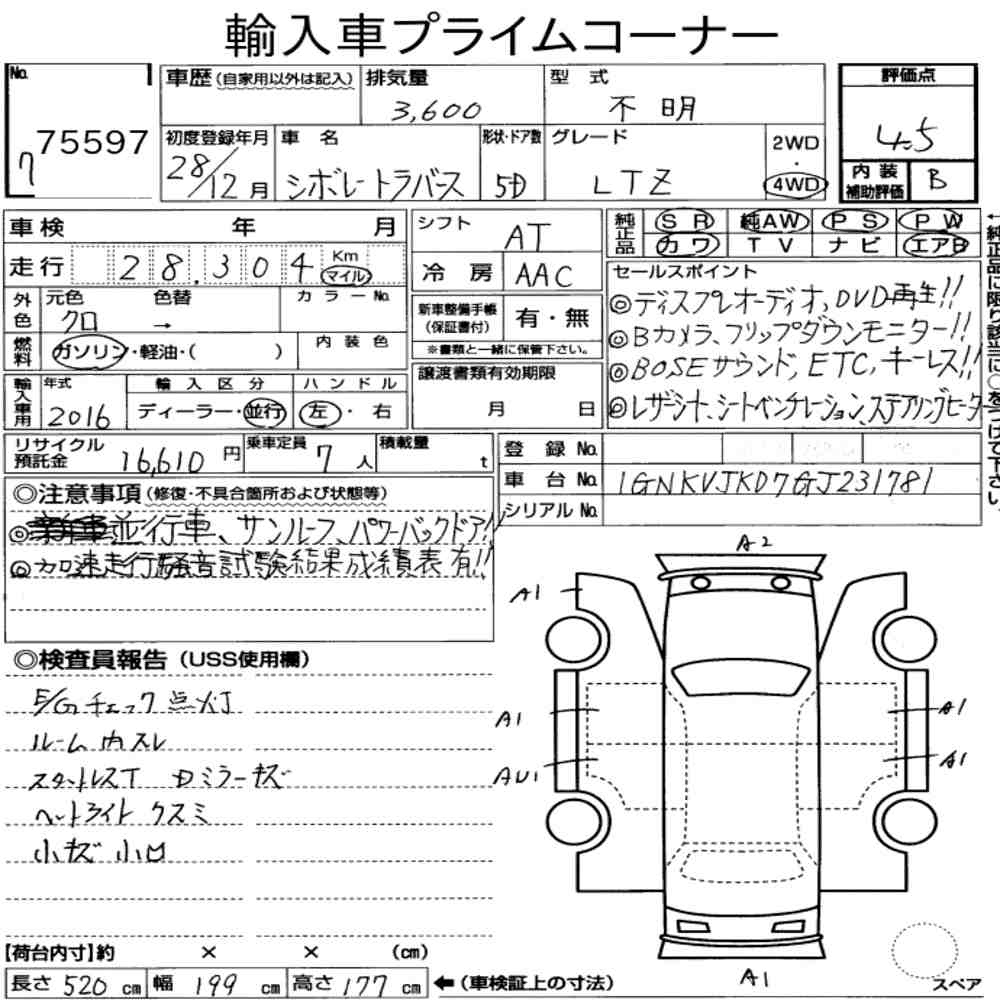 輸入車プライムコーナー
No.
75597
7
車歴 (自家用以外は記入)
排気量
3,600
型式
不明
評価点
4.5
初度登録年月
28/12月
車名
シボレートラバース
形状・ドア数
5D
グレード
LTZ
2WD
・
4WD
内装補助評価
B
車検 年 月
走行 28,304 Km マイル
外色
元色 色替 カラーNo.
クロ →
燃料
ガソリン・軽油・( )
内装色
輸入車用
年式
2016
輸入区分
ディーラー・並行
ハンドル
左・右
シフト
AT
冷房 AAC
新車整備手帳
(保証書付)
有・無
※書類と一緒に保管下さい。
譲渡書類有効期限
月 日
純正品
SR 純AW PS PW
カワ TV ナビ エアB
←純正品に限り該当に○をつけて下さい。
セールスポイント
◎ディスプレオーディオ,DVD再生!!
◎Bカメラ、フリップダウンモニター!!
◎BOSEサウンド,ETC,キーレス!!
◎レザーシート、シートベンチレーション、ステアリングヒーター
リサイクル預託金
16,610円
乗車定員
7人
積載量
t
登録No.
車台No. 1GNKVJKD7GJ231781
シリアルNo.
◎注意事項 (修復・不具合箇所および状態等)
◎並行車、サンルーフ、パワーバックドア!!
◎加速走行騒音試験結果成績表有!!
◎検査員報告 (USS使用欄)
E/Gチェック点灯
ルーム内スレ
スタットレスT Dミラーキズ
ヘットライトクスミ
小キズ小凹
A2
A1
A1
A1
AU1
A1
A1
スペア
【荷台内寸】約 × × (cm)
長さ 520 cm 幅 199 cm 高さ 177 cm ←(車検証上の寸法)